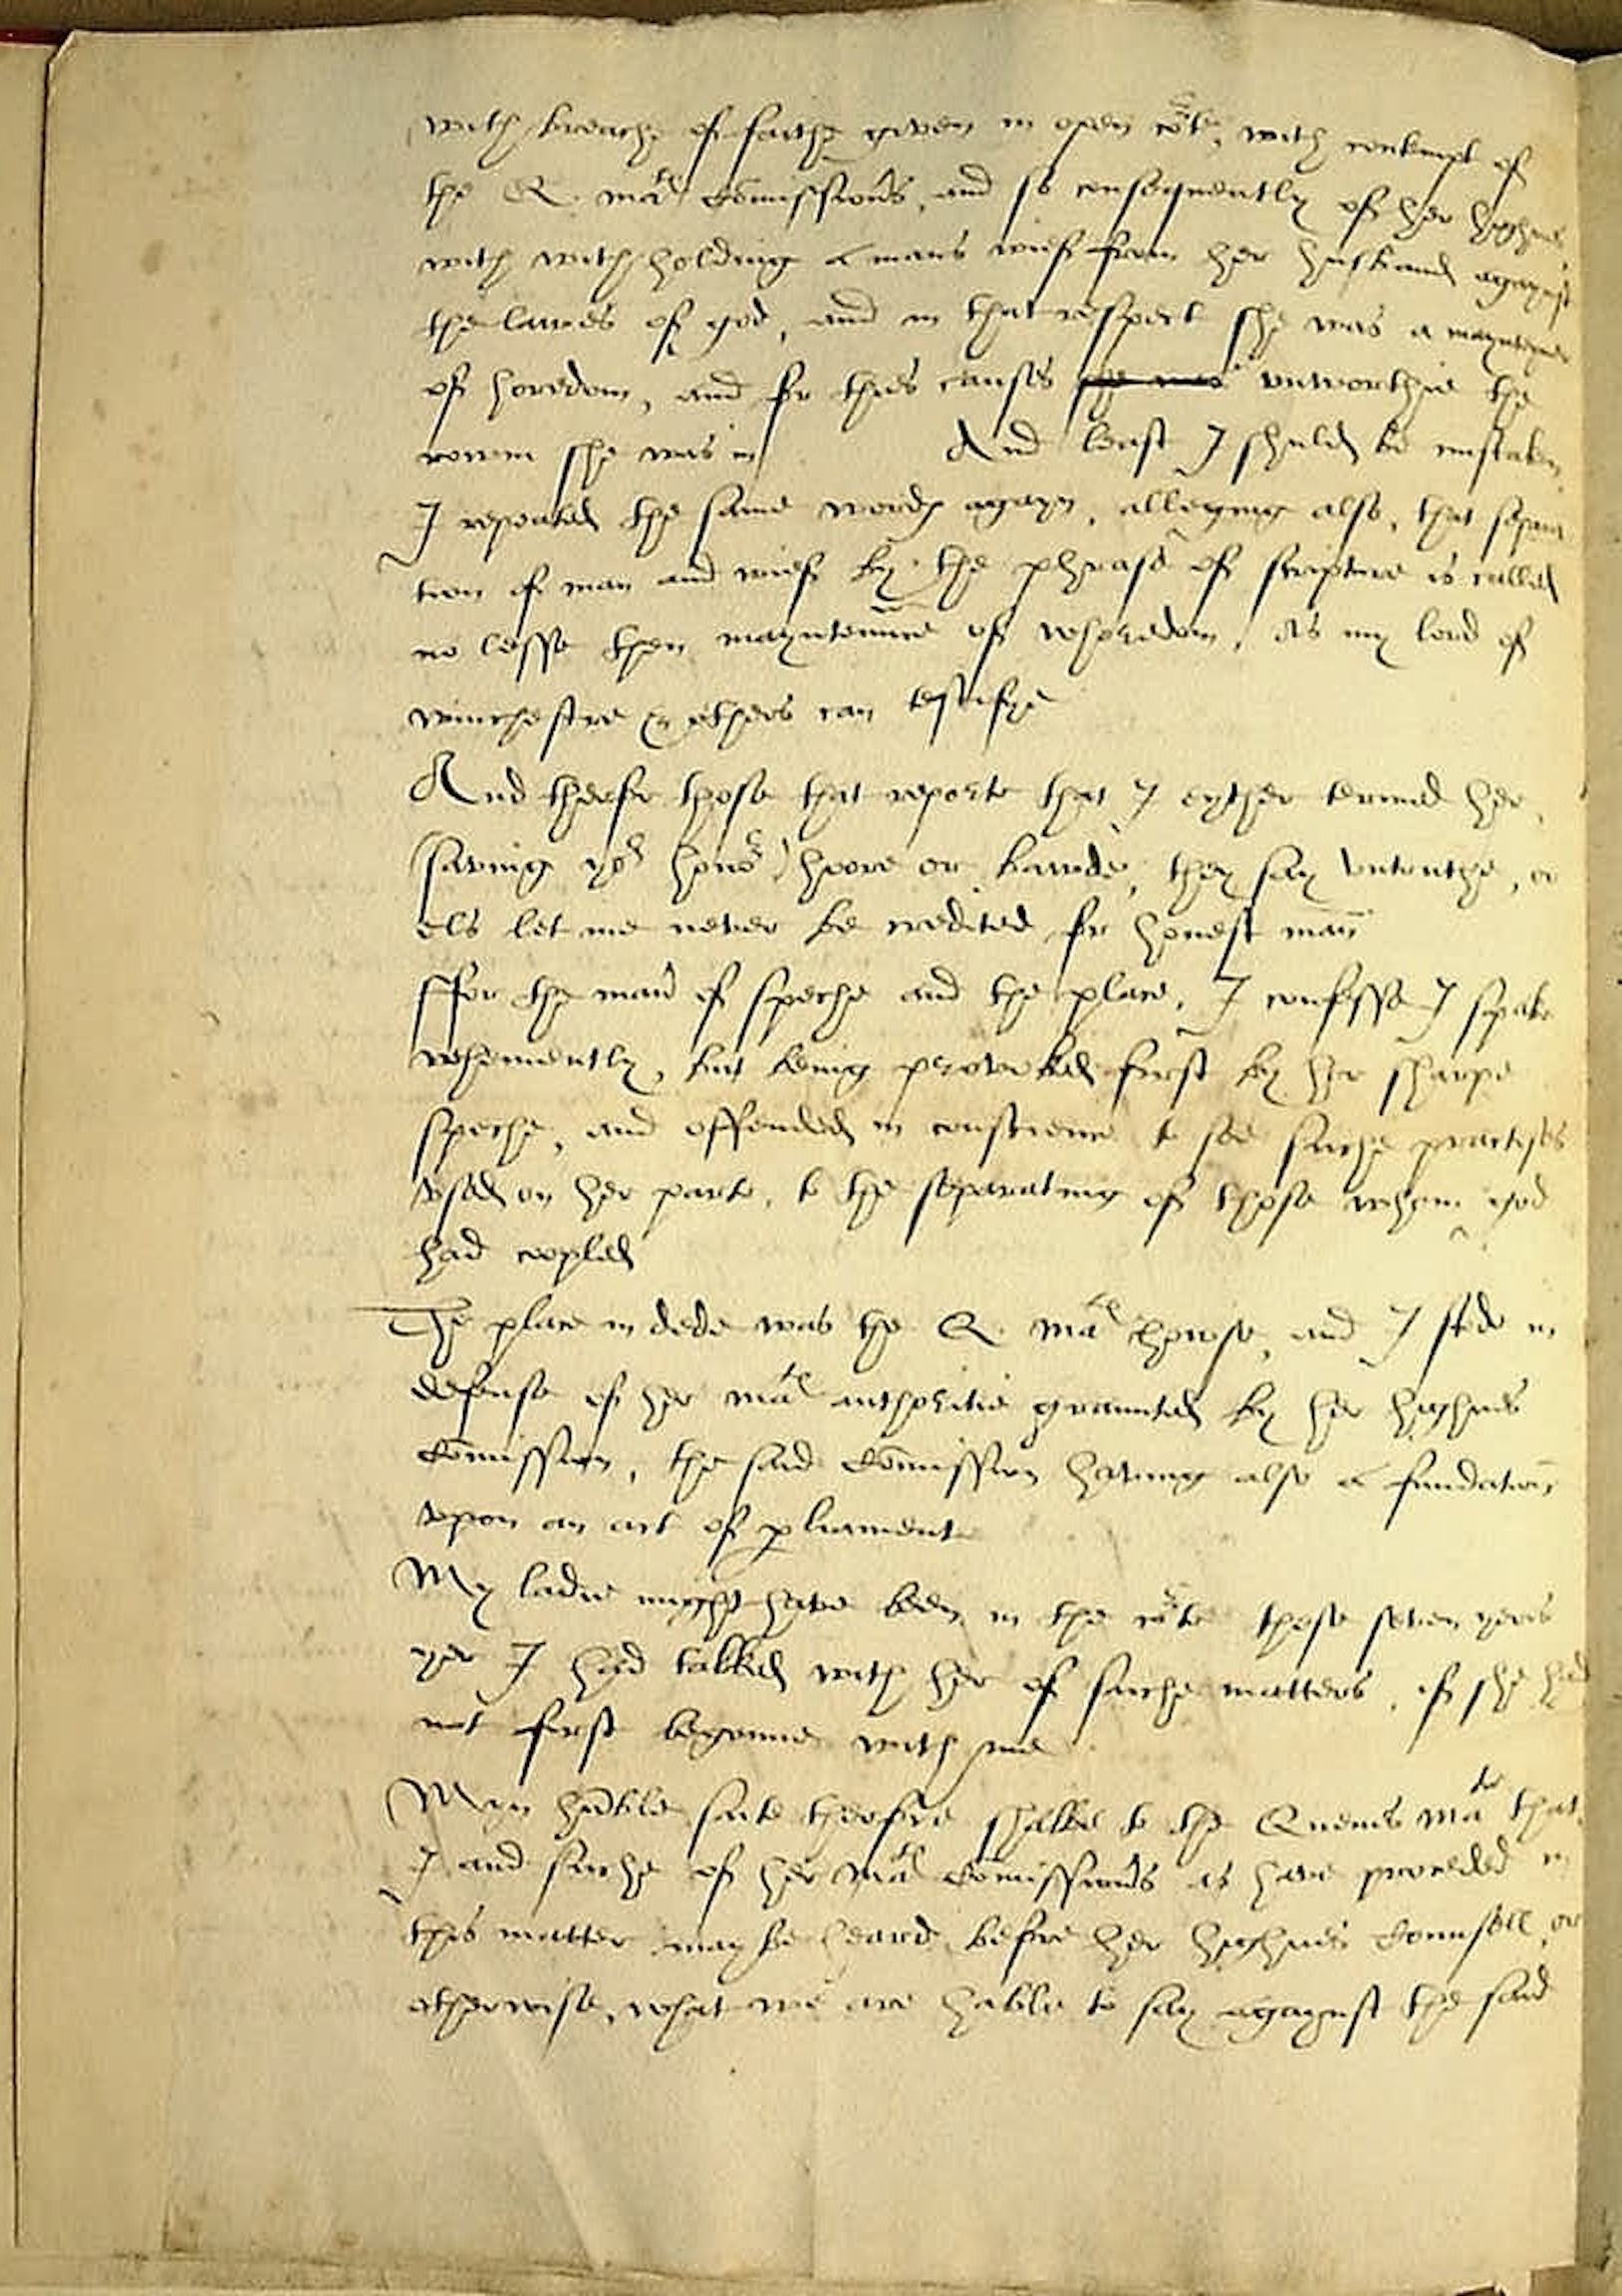 with breache of faithe given in open co^r^te, with contempt of
the Q. ma^tes^ Com̃issiono^r^s, and so consequently of her hyghnes
with with holding a mans wief from her husband agaynst
the lawes of god, and in that respect she was a maynteyner
of horedom, and for thies causes ~~she was~~ unworthie the
rowm she was in And least I shuld be mistaken
I repeated the same words agayn, alleging also, that separa
tion of man and wief by the phrase of scripture is called
no lesse then mayntenãnce of whoredom, As my lord of
winchestre & others can testifye
And therfor those that reporte that I eyther termed her,
(saving yo^r^ hono^r^) hoore or bawde, they say untruthe, or
els let me never be credited for honest mañ
ffor the man^r^ of speche and the place, I confesse I spake
vehemently, but being provoked first by her sharpe
speche, and offended in conscience to see suche practises
vsed on her parte, to the separating of those whom god
had coopled
The place in dede was the Q. ma^tes^ howse, and I stode in
defense of her ma^tes^ authoritie graunted by her hyghnes
Com̃ission, the said Com̃ission having also a fundatioñ
vpon an act of pliament
My ladie might have been in the co^r^te these seven yeres
yer I had talked with her of suche matters, if she had
not first begonne with me
Myn hũble sute therfore shalbe to the Quenes ma^tie^ that
I and suche of her ma^tes^ Com̃issiono^r^s as have proceded in
this matter may be heard before her hyghnes Counsell, or
otherwise, what we are hable to say agaynst the said